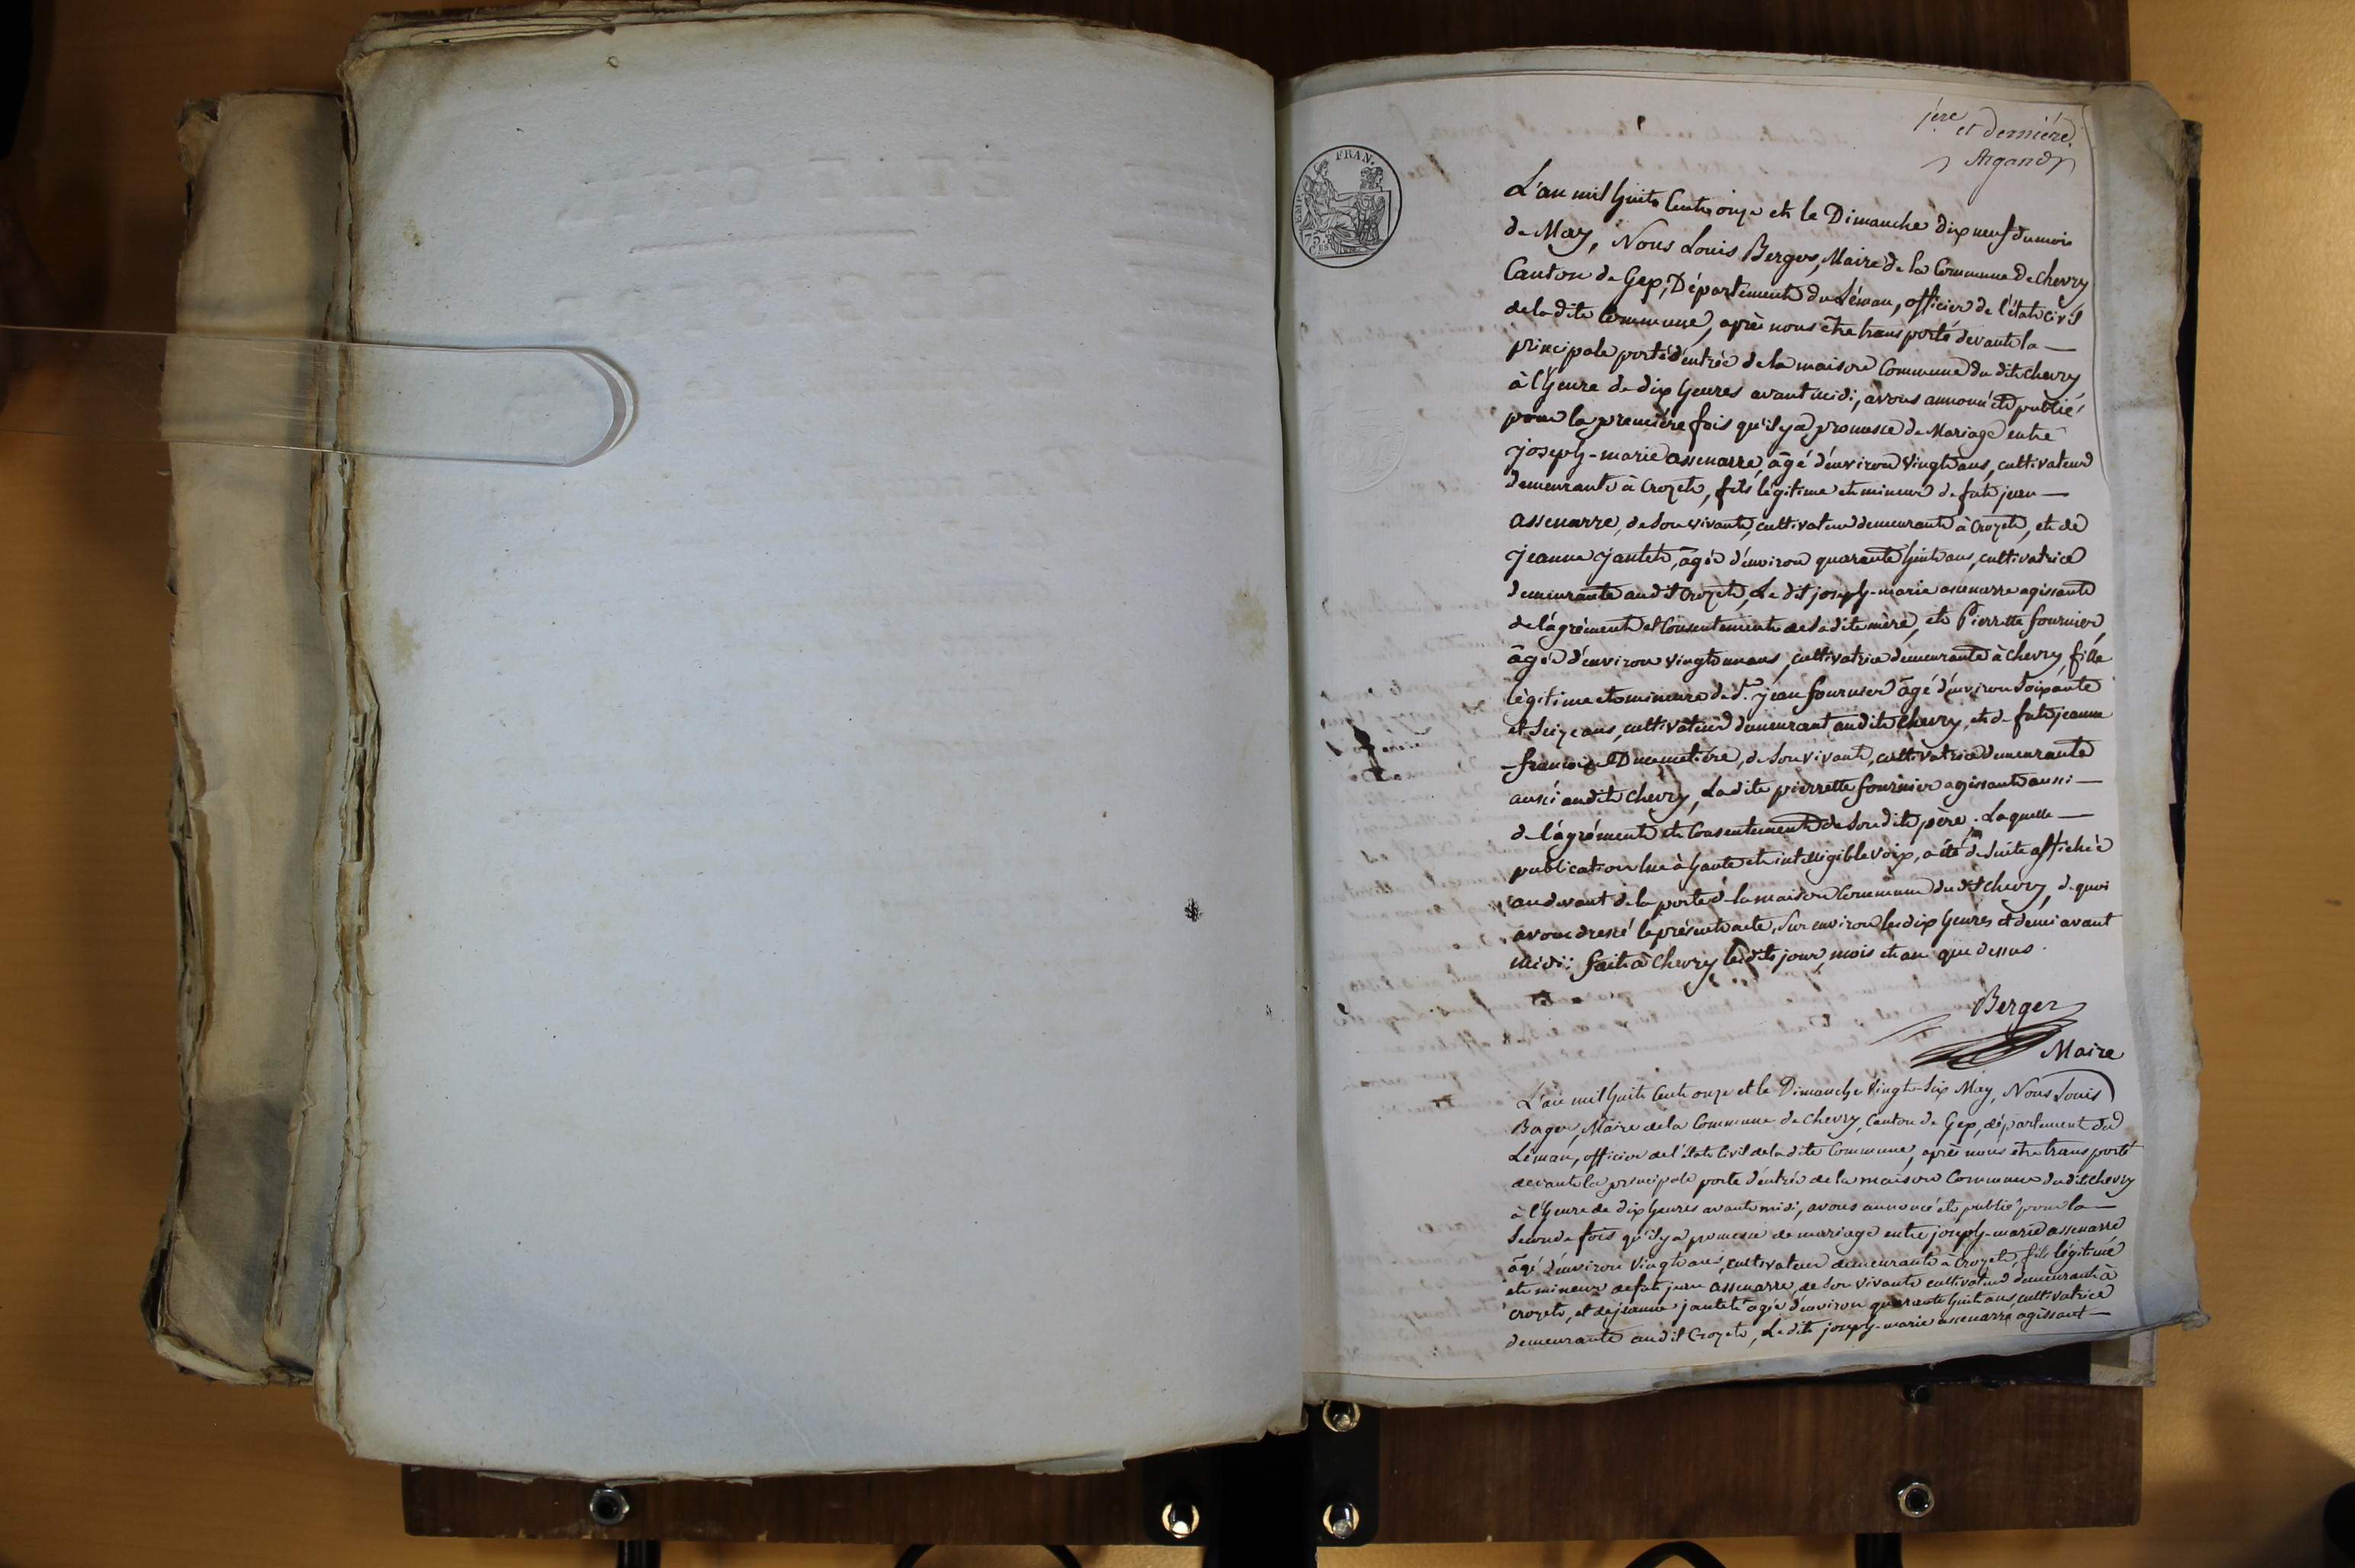 1ere et dernière
Argand
EMP. FRAN.
75.
CES
L'an mil huit Cent onze et le Dimanche dix neuf du mois
de May, Nous Louis Berger, Maire de la Commune de Chevry
Canton de Gex, Département du Léman, officier de l'état civil
de la dite Commune, après nous être transporté devant la —
principale porte d'entrée de la maison Commune du dit chevry
à l'heure de dix heures avant midi, avons annoncé et publié
pour la première fois qu'il y a promesse de Mariage entre
joseph-marie assenarre, âgé d'environ vingt ans, cultivateur
demeurant à Crozet, fils légitime et mineur de fut jean —
assenarre, de son vivant, cultivateur demeurant à Crozet, et de
jeanne jantet, âgée d'environ quarante huit ans, cultivatrice
demeurante audit Crozet, Le dit joseph-marie assenarre agissant
de l'agrément et Consentement de sadite mère, et Pierrette fournier
âgée d'environ vingt un ans, cultivatrice demeurante à chevry, fille
légitime et mineure de Sr. jean fournier âgé d'environ soixante
et Seize ans, cultivateur demeurant audit chevry, et de fut jeanne
-françoise Dumetière, de son vivant, cultivatrice demeurante
aussi audit chevry, Ladite pierrette fournier agissante aussi —
de l'agrément et Consentement de son dit père. Laquelle —
publication lue à haute et intelligible voix, a été de suite affichée
au devant de la porte de la maison Commune du dit chevry, de quoi
avons dressé le présent acte, Sur environ les dix heures et demi avant
midi; fait à Chevry les dits jour, mois et an que dessus.
Berger
Maire
L'an mil huit Cent onze et le Dimanche Vingt-Six May, Nous Louis
Berger, Maire de la Commune de Chevry, Canton de Gex, département du
Léman, officier de l'état Civil de la dite Commune, après nous être transporté
devant la principale porte d'entrée de la maison Commune du dit chevry
à l'heure de dix heures avant midi, avons annoncé et publié pour la —
Seconde fois qu'il y a promesse de mariage entre joseph-marie assenarre
âgé d'environ Vingt ans, cultivateur demeurant à Crozet, fils légitime
et mineur de fut jean assenarre, de son vivant cultivateur demeurant à
Crozet, et de jeanne jantet âgée d'environ quarante huit ans cultivatrice
demeurante audit Crozet, Le dit joseph-marie assenarre agissant —